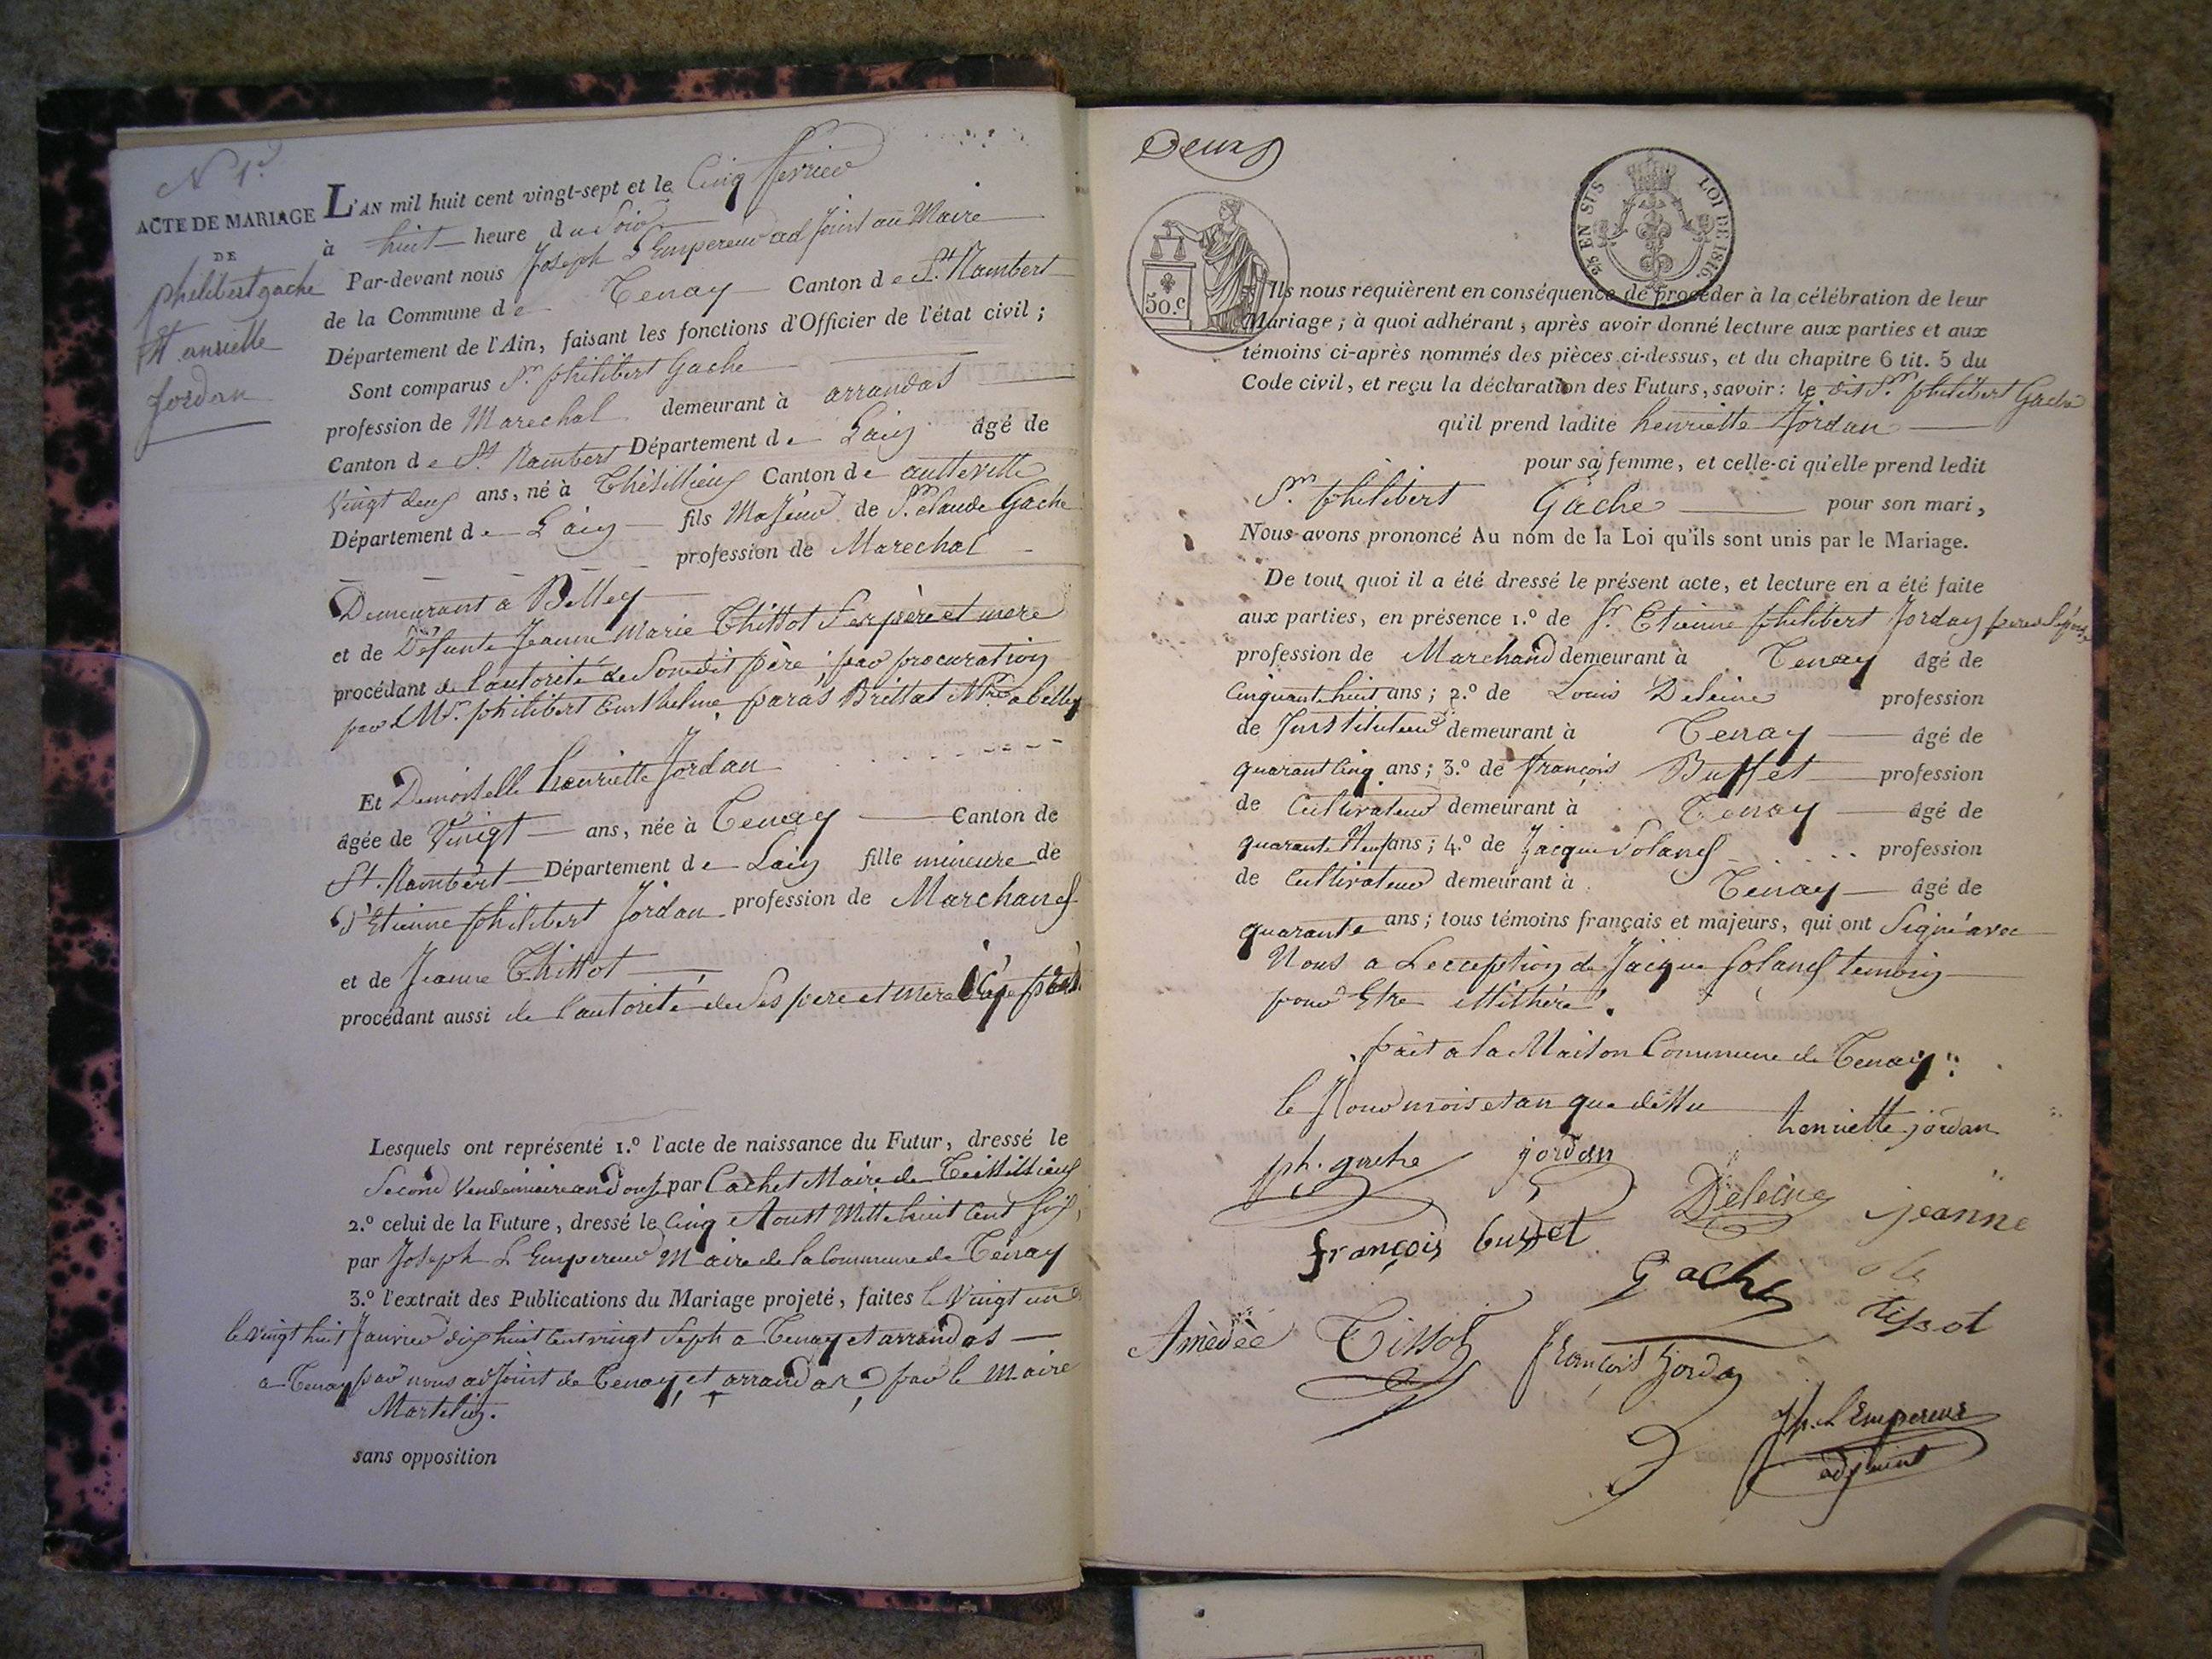 N 1.
ACTE DE MARIAGE
DE
philibert gache
Et anriette
Jordan
L'AN mil huit cent vingt-sept et le Cinq fevrier
à huit heure du Soir
Par-devant nous Joseph L'Empereur adjoint au Maire
de la Commune de Tenay Canton de St. Rambert
Département de l'Ain, faisant les fonctions d'Officier de l'état civil ;
Sont comparus Sr. philibert Gache
profession de Marechal demeurant à arrandas
Canton de St. Rambert Département de Lain âgé de
Vingt deux ans, né à Thésillieux Canton de autteville
Département de Lain fils Majeur de Sr. Claude Gache
profession de Marechal
Demeurant a Belley
et de Defunte Jeanne Marie Thissot Ses père et mere
procédant de l'autorité de Sondit père, par procuration
par Mr. philibert Brillat Ntre. a belley
Et Demoiselle henriette Jordan
âgée de Vingt ans, née à Tenay Canton de
St. Rambert Département de Lain fille mineure de
d'Etienne philibert Jordan profession de Marchand
et de Jeanne Thissot
procédant aussi de l'autorité de Ses pere et mere
Lesquels ont représenté 1.º l'acte de naissance du Futur, dressé le
Second Vendemiaire an Douze par Cachet Maire de Teisillieux
2.º celui de la Future, dressé le Cinq Aoust Mille huit Cent Six,
par Joseph L'Empereur Maire de la Commune de Tenay
3.º l'extrait des Publications du Mariage projeté, faites le Vingt un
le vingt huit Janvier dix huit Cent vingt Sept a Tenay et arrandas
a Tenay par nous adjoint de Tenay, et arrandas, par le Maire
Martelin.
sans opposition
Deux
50.c
2/5 EN SUS
LOI DE 1816.
Ils nous requièrent en conséquence de procéder à la célébration de leur
Mariage ; à quoi adhérant, après avoir donné lecture aux parties et aux
témoins ci-après nommés des pièces ci-dessus, et du chapitre 6 tit. 5 du
Code civil, et reçu la déclaration des Futurs, savoir : le dit Sr. philibert Gache
qu'il prend ladite henriette Jordan
pour sa femme, et celle-ci qu'elle prend ledit
Sr. philibert Gache pour son mari,
Nous avons prononcé Au nom de la Loi qu'ils sont unis par le Mariage.
De tout quoi il a été dressé le présent acte, et lecture en a été faite
aux parties, en présence 1.º de Sr. Etienne philibert Jordan
profession de Marchand demeurant à Tenay âgé de
Cinquante huit ans ; 2.º de Louis Deleine profession
de Instituteur demeurant à Tenay âgé de
quarant Cinq ans ; 3.º de françois Buffet profession
de Cultivateur demeurant à Tenay âgé de
quarante Neuf ans ; 4.º de Jacque Soland profession
de Cultivateur demeurant à Tenay âgé de
quarante ans ; tous témoins français et majeurs, qui ont Signé avec
Nous a Lexception de Jacque Soland temoin
pour Etre illithéré.
fait a la Maison Commune de Tenay
le Jour mois et an que dessu
henriette jordan
ph. gache jordan
Deleine jeanne
françois buffet
Gache
tissot
Amèdèe Tissot françois Jordan
Jh. L'Empereur
adjoint